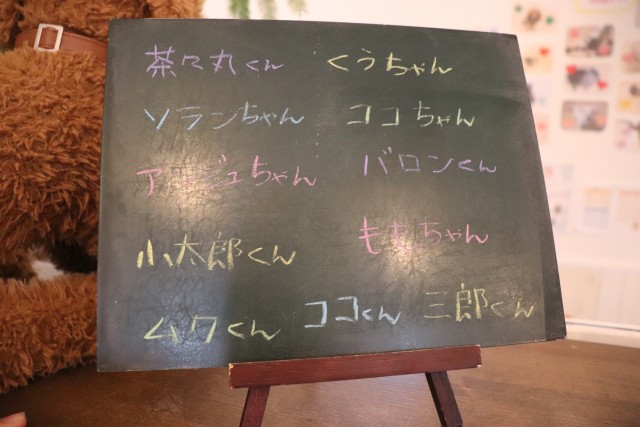 茶々丸くん くうちゃん
ソランちゃん ココちゃん
アンジュちゃん バロンくん
小太郎くん ちゃん
ムクくん ココくん 三郎くん